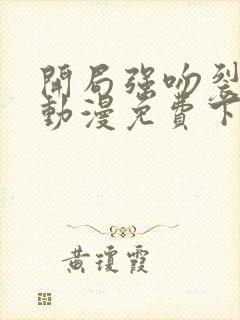 開局強吻裂
動漫免費下
黄瓊霞